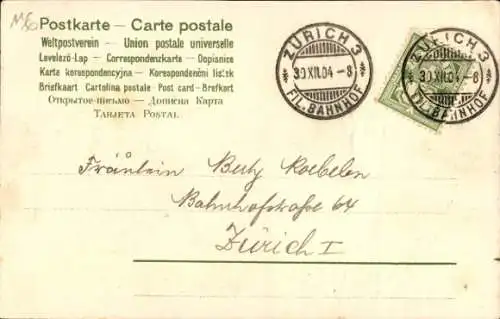 Postkarte – Carte postale
Weltpostverein – Union postale universelle
Levelező-Lap – Correspondenzkarte – Dopisnice
Karta korespondencyjna – Korespondenční lístek
Briefkaart Cartolina postale Post card – Brefkort
Открытое-письмо – Дописна Карта
Tarjeta Postal
ZÜRICH 3
30.XII.04 – 8
FIL. BAHNHOF
ZÜRICH 3
30.XII.04 – 8
FIL. BAHNHOF
Fräulein
Bahnhofstraße 64
Zürich I